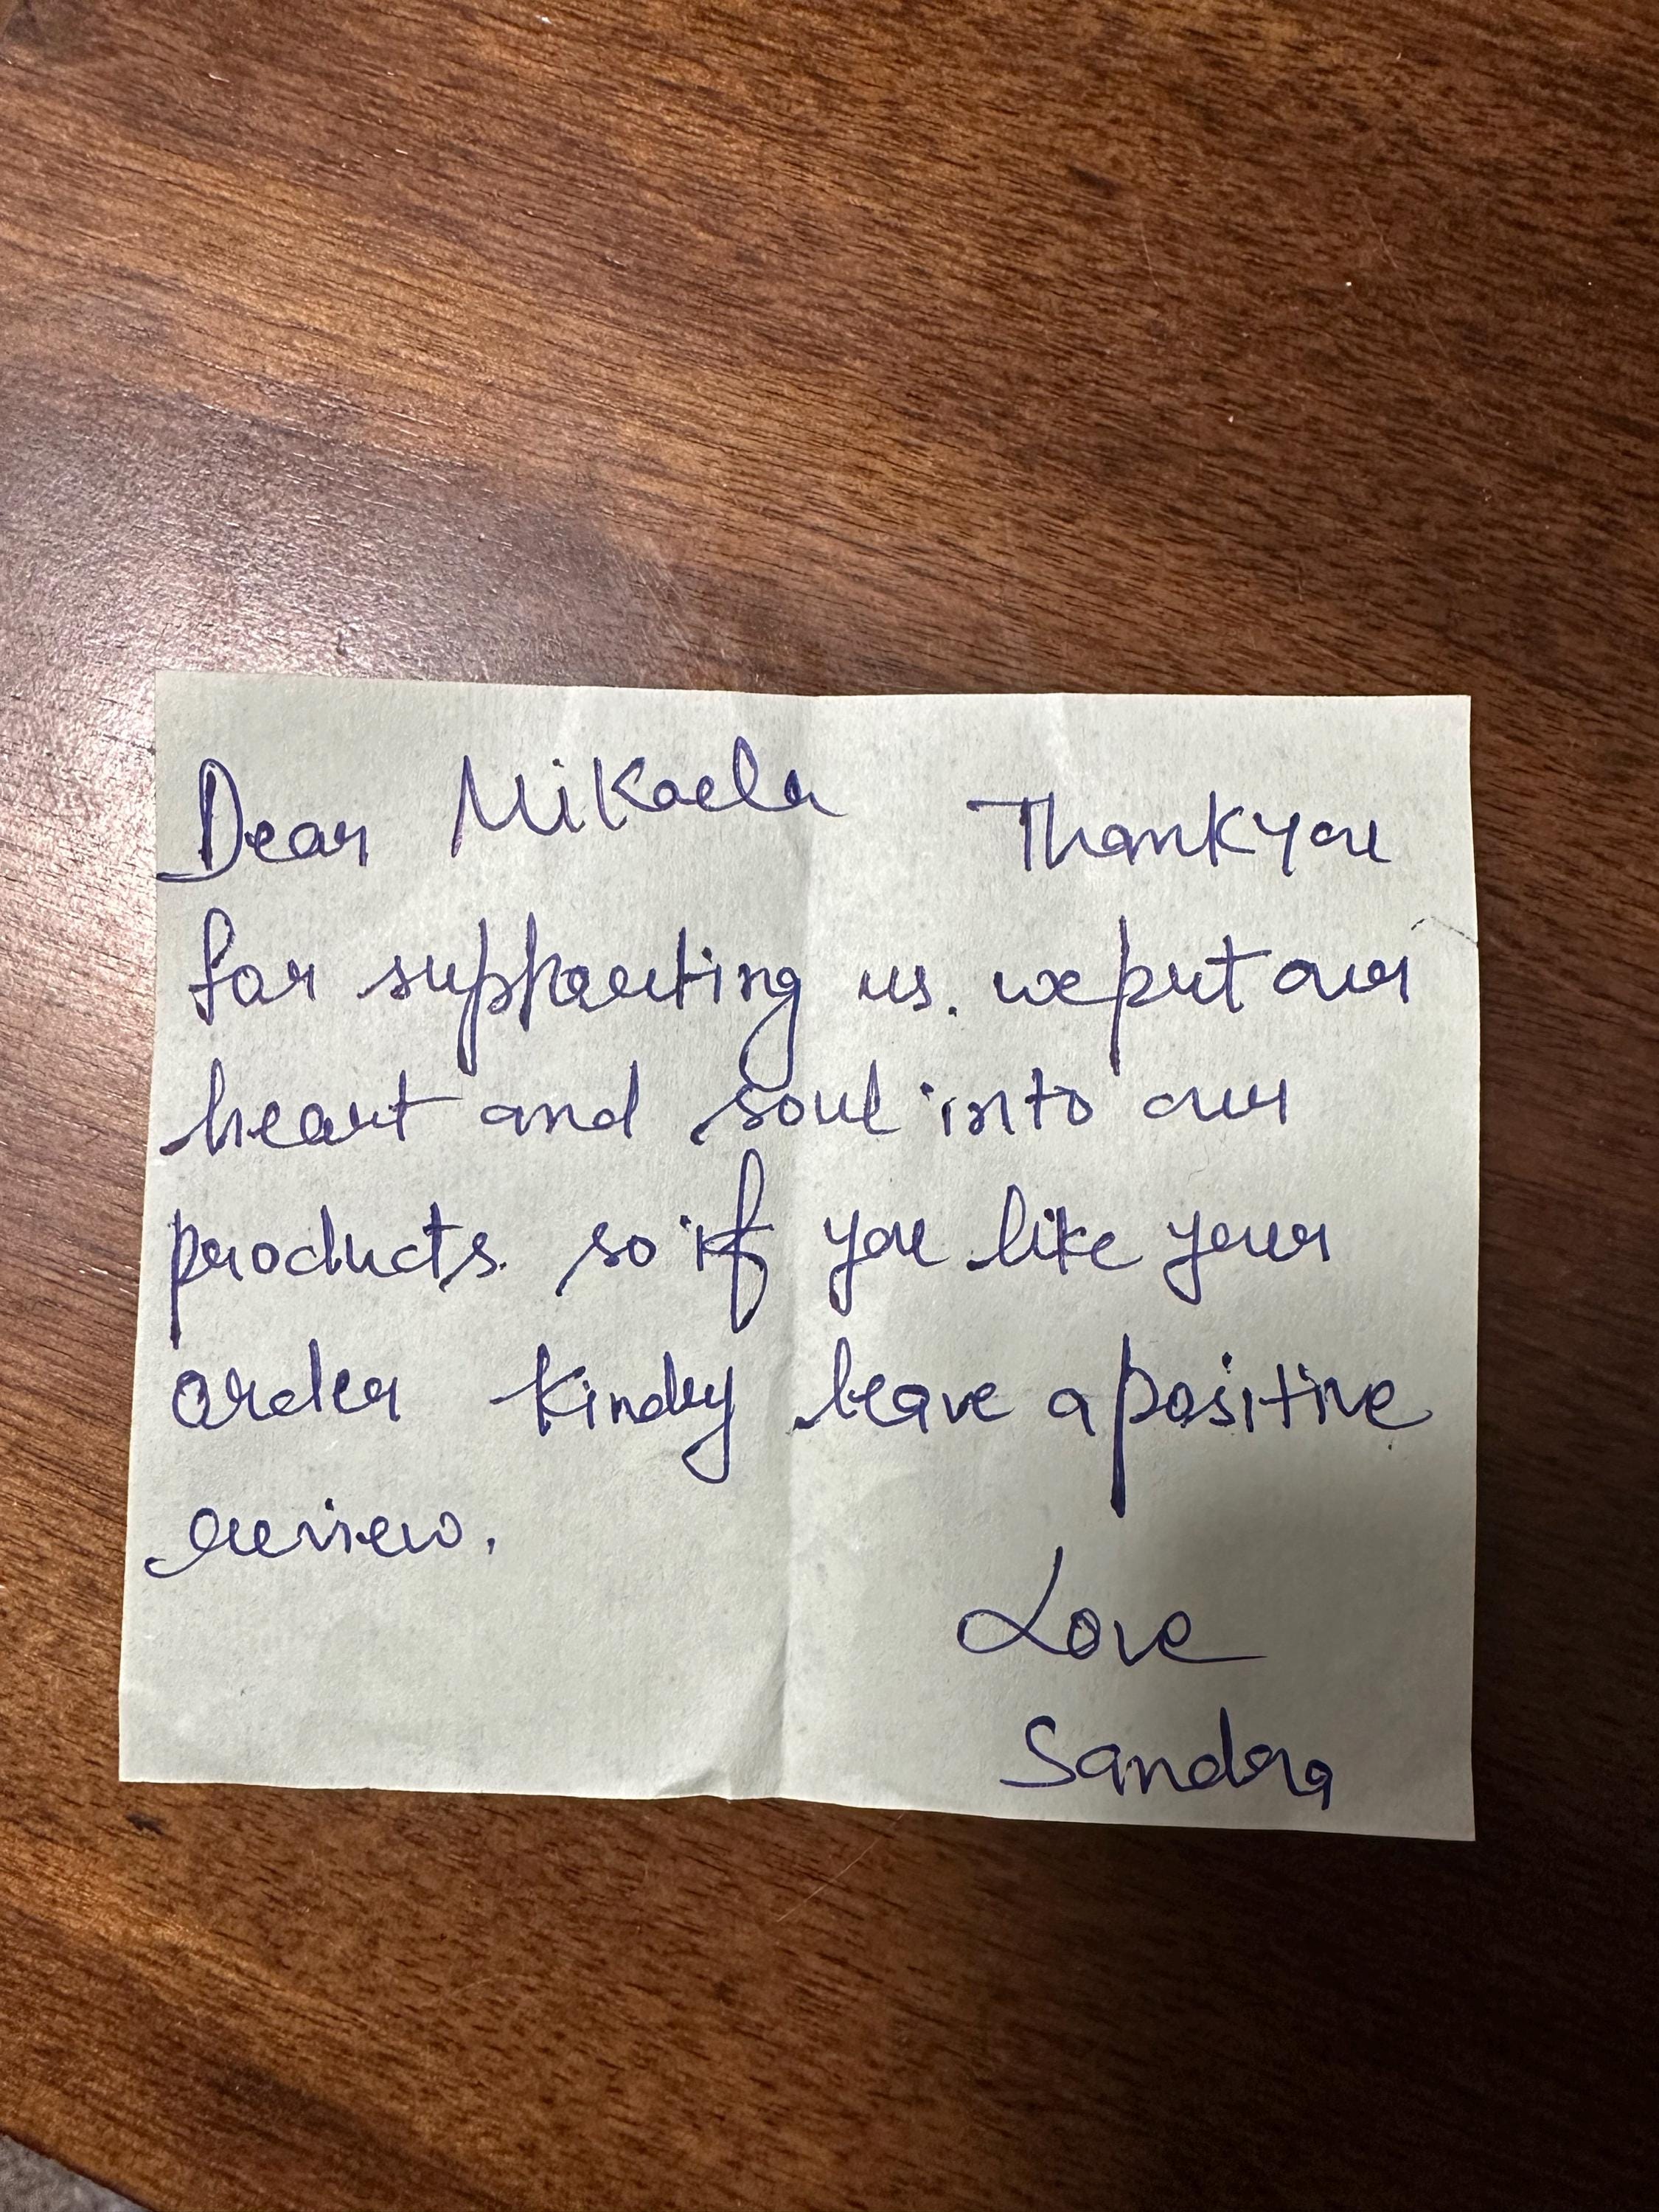 Dear Mikaela Thankyou
for supporting us. we put our
heart and soul into our
products. so if you like your
order kindly leave a positive
review.
Love
Sandra